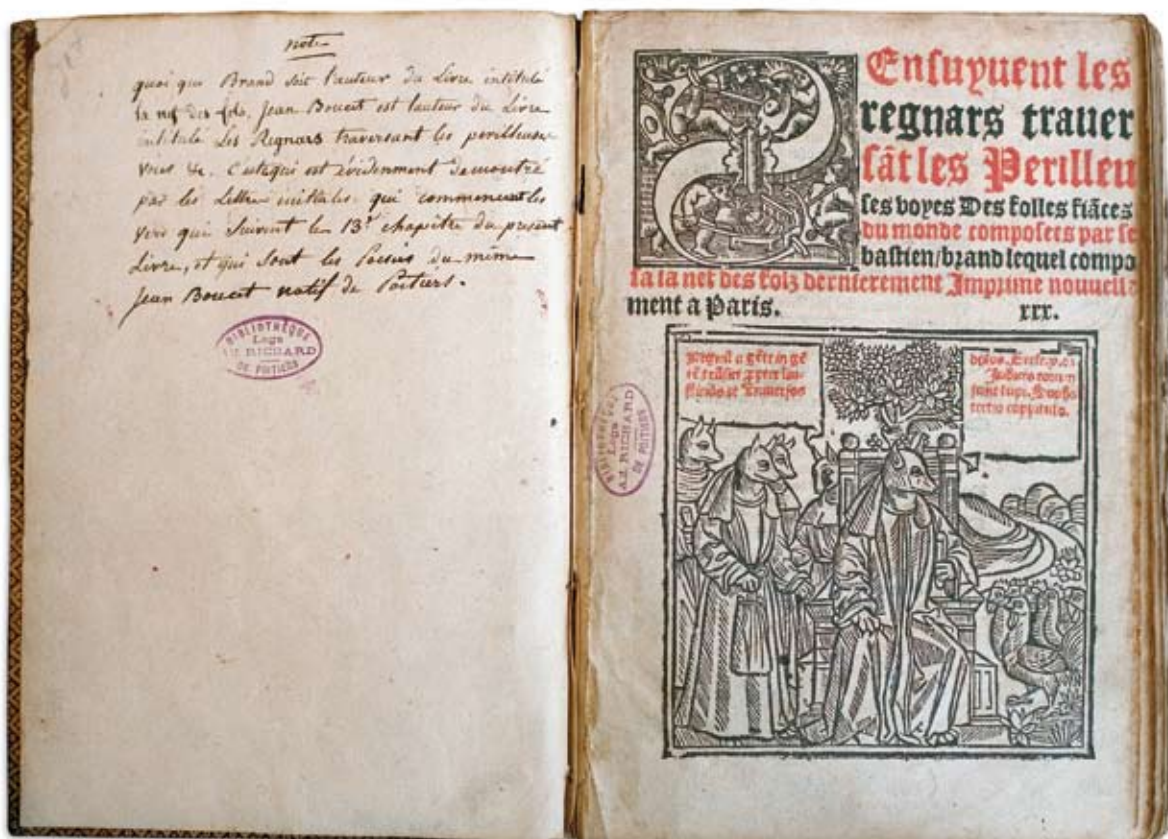 note
quoi que Brand soit l'auteur du Livre intitulé
la nef des fols, Jean Boucet est lauteur du Livre
intitulé Les Regnars traversant les perilleuses
voies &c. c'est ce qui est évidemment demontré
par les Lettres initiales qui commencent les
vers qui suivent le 13e chapitre du present
Livre, et qui sont les Poesies du même
Jean Boucet natif de Poitiers.
BIBLIOTHÈQUE
Legs
RICHARD
DE POITIERS
S Ensuyuent les
regnars trauer
sãt les Perilleu
ses voyes Des folles fiãces
du monde composees par se
bastien/brand lequel compo
sa la nef des folz dernierement Imprime nouuelle
ment a Paris. xxx.
a gẽte in gẽ
et
lupi.
tertio capitulo.
BIBLIOTHÈQUE
Legs
RICHARD
DE POITIERS